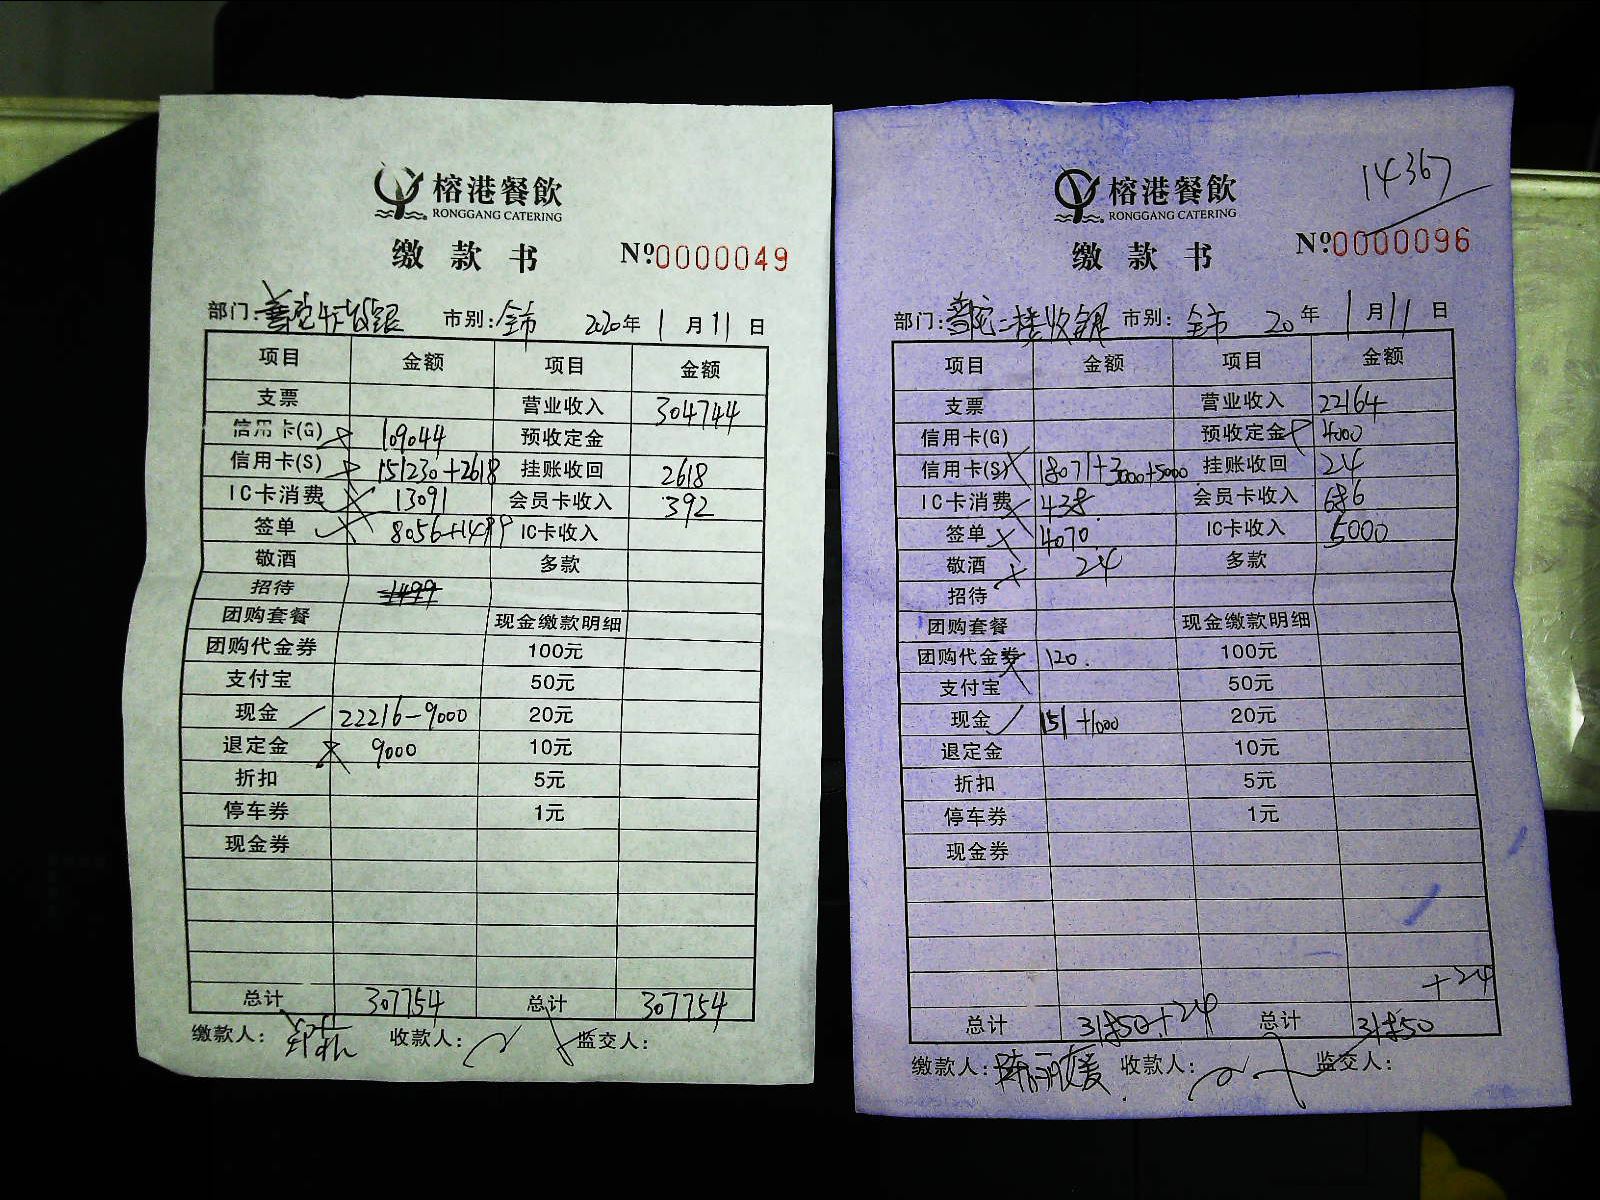 榕港餐飲
RONGGANG CATERING
缴款书
Nº0000049
部门: 市别:全市 2020年1月11日
项目 金额 项目 金额
支票 营业收入 304744
信用卡(G) 109044 预收定金
信用卡(S) 151230+2618 挂账收回 2618
IC卡消费 13091 会员卡收入 392
签单 8056+1499 IC卡收入
敬酒 多款
招待 1499
团购套餐 现金缴款明细
团购代金券 100元
支付宝 50元
现金 22216-9000 20元
退定金 9000 10元
折扣 5元
停车券 1元
现金券
总计 307754 总计 307754
缴款人: 收款人: 监交人:
14367
榕港餐飲
RONGGANG CATERING
缴款书
Nº0000096
部门:普陀二楼收银 市别:全市 20年1月11日
项目 金额 项目 金额
支票 营业收入 22164
信用卡(G) 预收定金 4000
信用卡(S) 18071+3000+5000 挂账收回 24
IC卡消费 438 会员卡收入 686
签单 4070 IC卡收入 5000
敬酒 24 多款
招待
团购套餐 现金缴款明细
团购代金券 120. 100元
支付宝 50元
现金 151+1000 20元
退定金 10元
折扣 5元
停车券 1元
现金券
+24
总计 31850+24 总计 31850
缴款人: 收款人: 监交人: